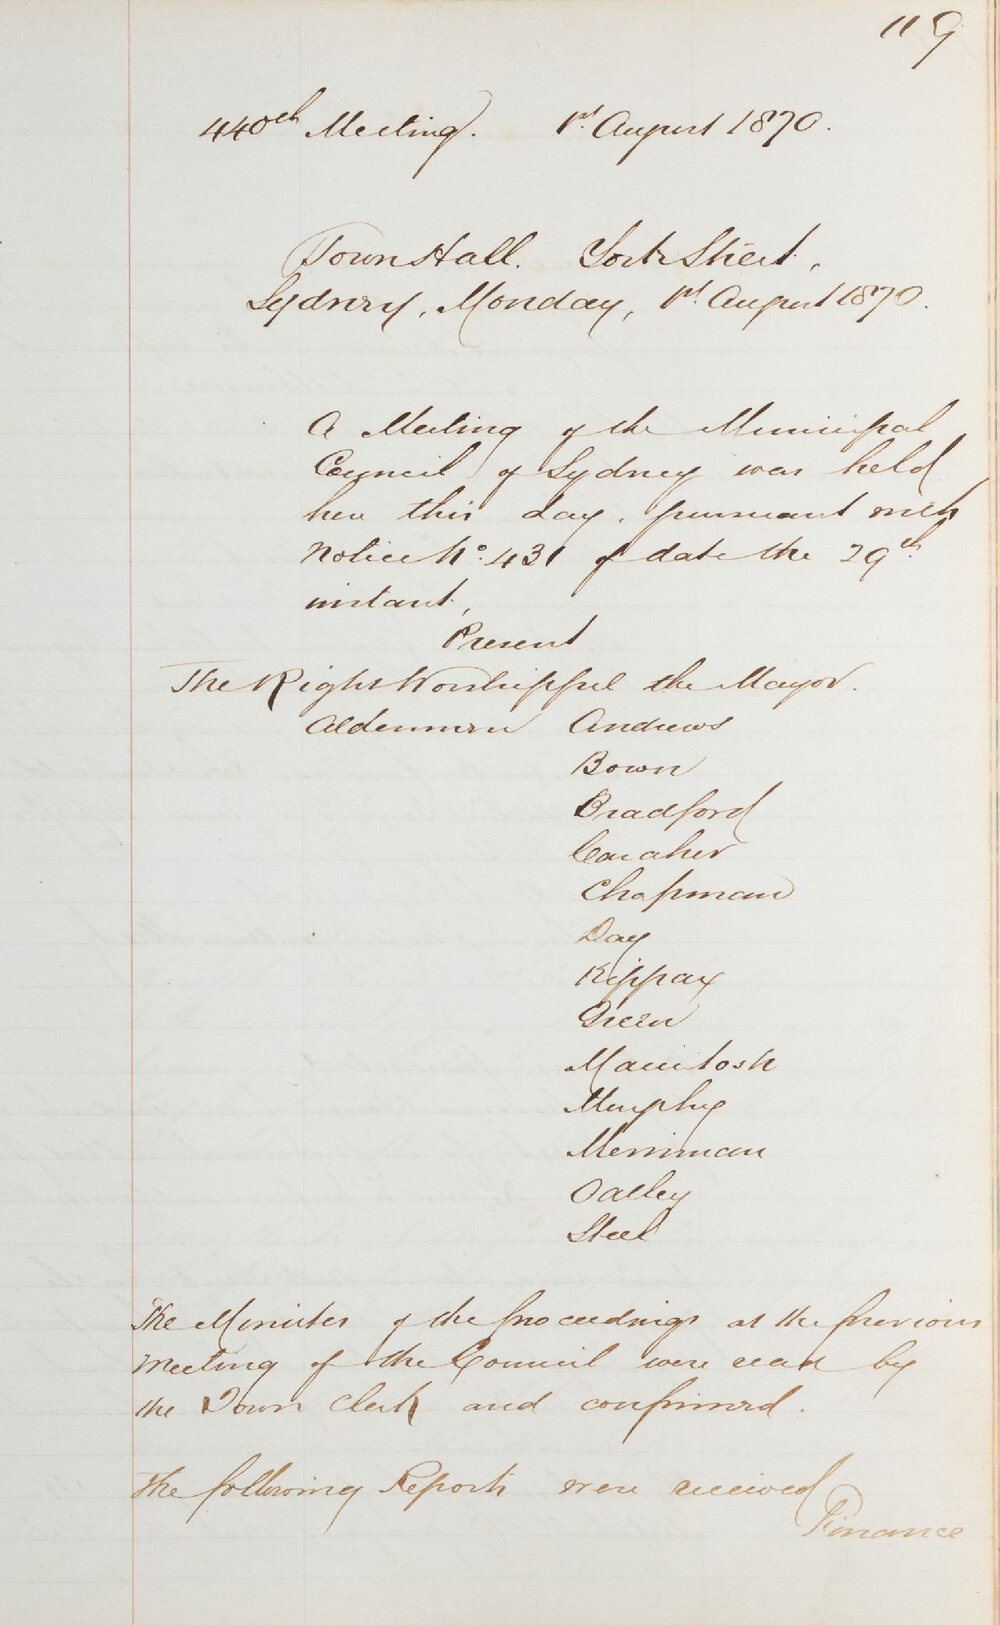 119
440th Meeting. 1st August 1870.
Town Hall. York Street,
Sydney, Monday, 1st August 1870.
A Meeting of the Municipal
Council of Sydney was held
here this day, pursuant with
Notice No. 431 of date the 29th
instant,
Present
The Right Worshipful the Mayor.
Aldermen Andrews
Bown
Bradford
Caraher
Chapman
Day
Kippax
Green
Macintosh
Murphy
Merriman
Oatley
Steel
The Minutes of the proceedings at the previous
Meeting of the Council were read by
the Town Clerk and confirmed.
The following Reports were received
Finance